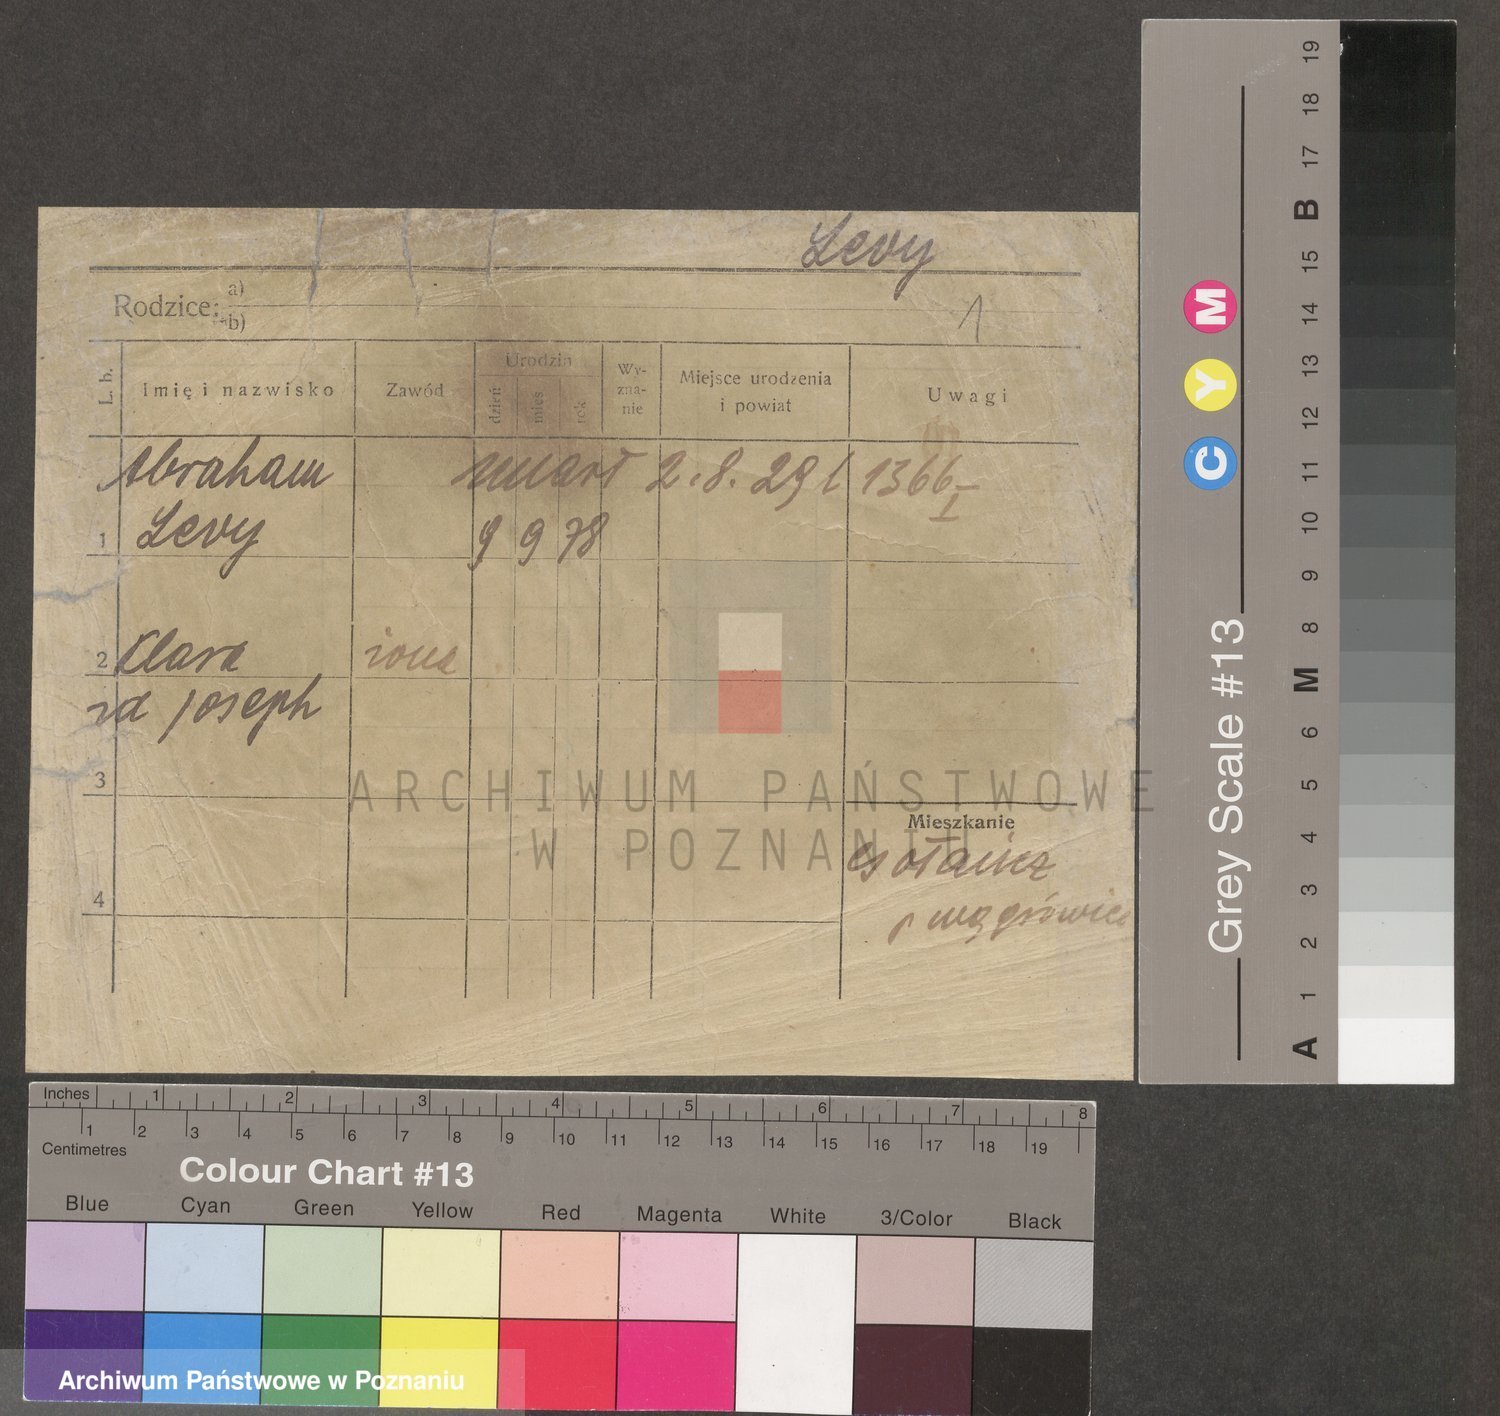 Levy
Rodzice: a)
b)
1
L. b. Imię i nazwisko Zawód Urodzin dzień mies rok Wy-zna-nie Miejsce urodzenia i powiat Uwagi
Abraham umarł 2.8.29 1366 I
1 Levy 9 9 78
2 Klara żona
zd Joseph
3
ARCHIWUM PAŃSTWOWE
Mieszkanie
W POZNANIU
Gołańcz
4
p wągrówiec
Inches 1 2 3 4 5 6 7 8
1 2 3 4 5 6 7 8 9 10 11 12 13 14 15 16 17 18 19
Centimetres
Colour Chart #13
Blue Cyan Green Yellow Red Magenta White 3/Color Black
Archiwum Państwowe w Poznaniu
Grey Scale #13
C Y M
A 1 2 3 4 5 6 M 8 9 10 11 12 13 14 15 B 17 18 19